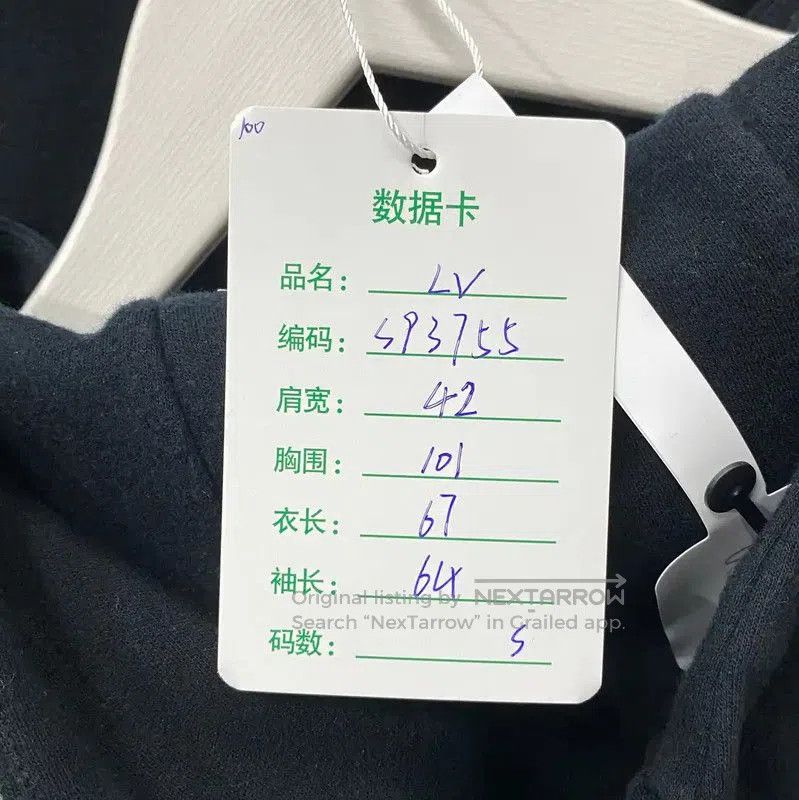 100
数据卡
品名: LV
编码: S93755
肩宽: 42
胸围: 101
衣长: 67
袖长: 64
Original listing by NEXTARROW
Search “NexTarrow” in Grailed app.
码数: S